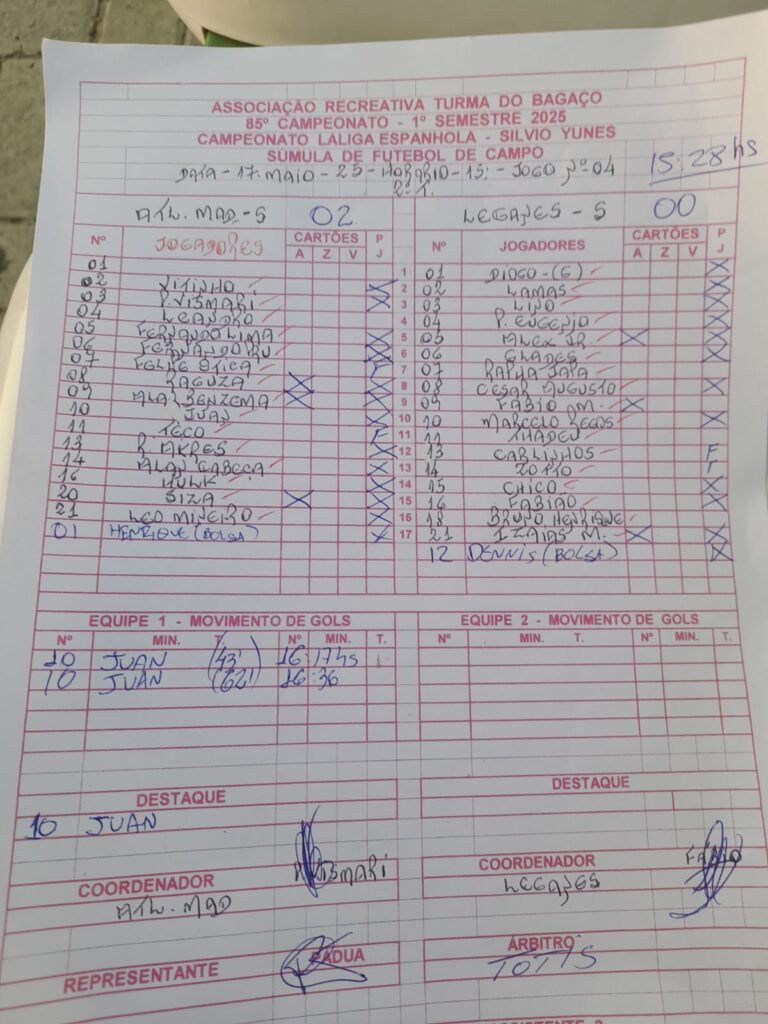 ASSOCIAÇÃO RECREATIVA TURMA DO BAGAÇO
85º CAMPEONATO - 1º SEMESTRE 2025
CAMPEONATO LALIGA ESPANHOLA - SILVIO YUNES
SÚMULA DE FUTEBOL DE CAMPO
15:28 hs
DATA - 17. MAIO - 25 - HORARIO - 15: - JOGO Nº 04
2º T.
ATL. MAD - S 02 LEGANES - S 00
Nº JOGADORES CARTÕES P Nº JOGADORES CARTÕES P
A Z V J A Z V J
01 1 01 DIOGO - (G) X
02 VITINHO X 2 02 LAMAS X
03 P. VISMARI X 3 03 LINO X
04 LEANDRO 4 04 P. EUGENIO X
05 FERNANDO LIMA X 5 05 ALEX JR. X X
06 X 6 06 X
07 FELPE F 7 07 RAPHA JAPA
08 RAGUZA X X 8 08 CESAR AUGUSTO X
09 ALAN BENZEMA X X 9 09 FABIO M. X
10 JUAN X 10 10 MARCELO X
11 TECO F 11 11 THADEU
13 X 12 13 CARLINHOS F
14 ALAN CABEÇA X 13 14 F
16 HULK X 14 15 CHICO X
20 SIZA X X 15 16 FABIÃO X
21 LEO MINEIRO X 16 18 BRUNO HENRIQUE
01 HENRIQUE (BOLSA) X 17 21 IZAIAS M. X X
12 DENNIS (BOLSA) X
EQUIPE 1 - MOVIMENTO DE GOLS EQUIPE 2 - MOVIMENTO DE GOLS
Nº MIN. T. Nº MIN. T. Nº MIN. T. Nº MIN. T.
10 JUAN (43') 16:17hs
10 JUAN (62') 16:36
DESTAQUE DESTAQUE
10 JUAN
COORDENADOR VISMARI COORDENADOR FABIO
ATL. MAD LEGANES
REPRESENTANTE PADUA ÁRBITRO
TOTTIS